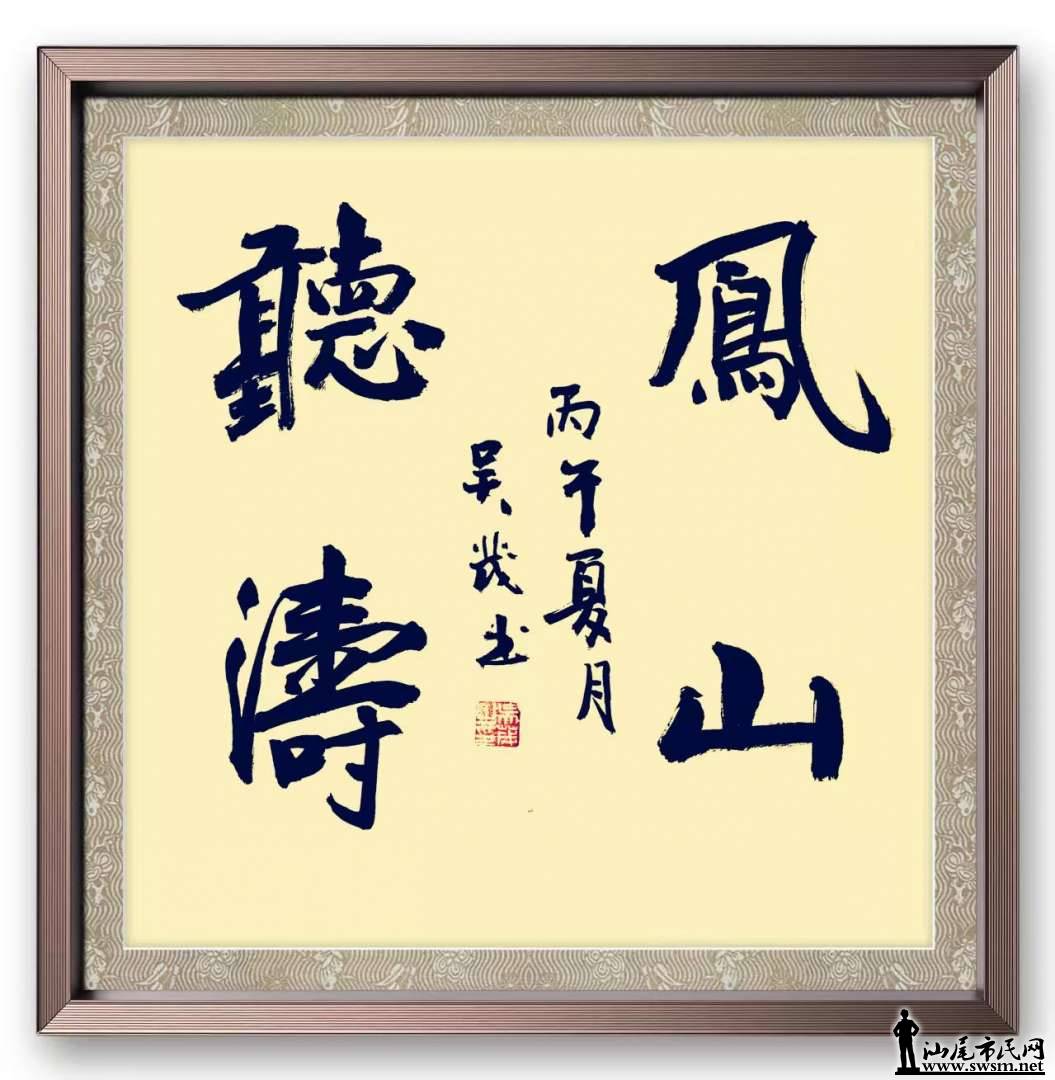 鳳山
聽濤
丙午夏月
吴茂书
汕尾市民网
www.swsm.net